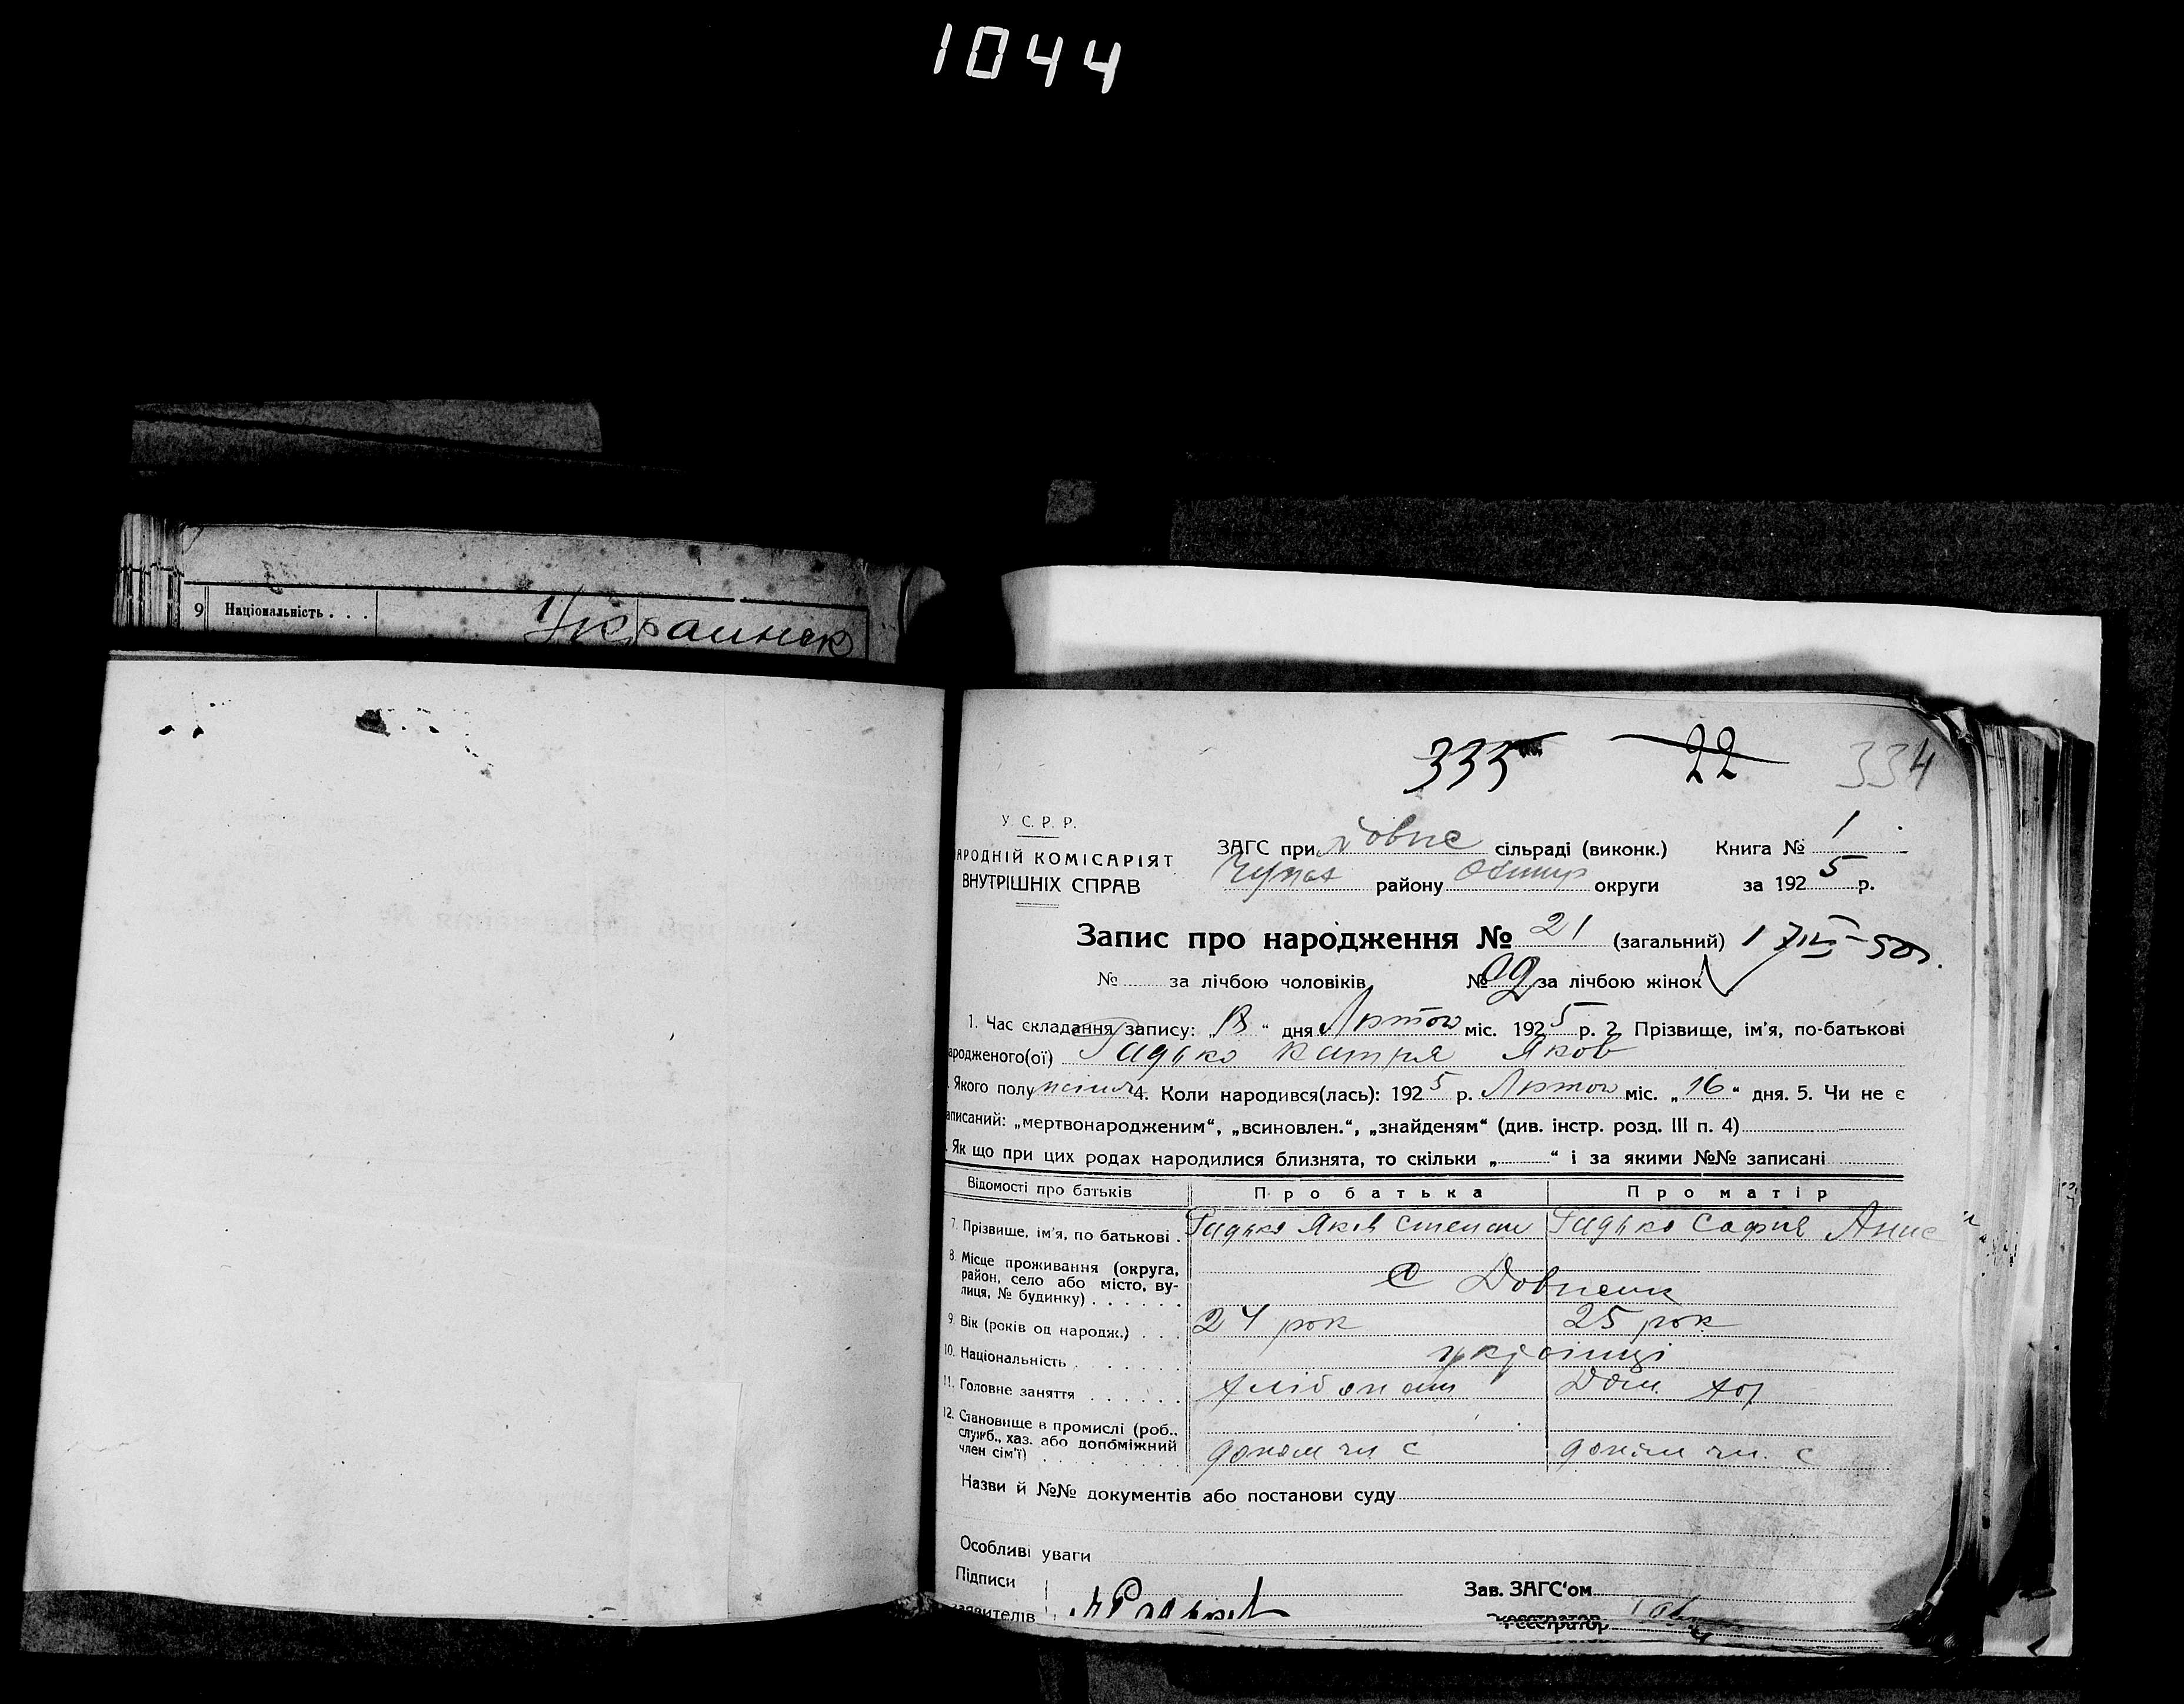 1044
9 Національність . . . Украинск
335 22 334
У. С. Р. Р.
АРОДНІЙ КОМІСАРІЯТ
ВНУТРІШНІХ СПРАВ
ЗАГС при Довпе сільраді (виконк.) Книга № 1
району округи за 1925 р.
Запис про народження № 21 (загальний)
№ за лічбою чоловіків № 09 за лічбою жінок
1. Час складання запису: „18“ дня Лютого міс. 1925 р. 2. Прізвище, ім'я, по-батькові
ародженого(ої) Радько Катря Яков
Якого полу 4. Коли народився(лась): 1925 р. Лютого міс. „16“ дня. 5. Чи не є
аписаний: „мертвонародженим“, „всиновлен.“, „знайденям“ (див. інстр. розд. III п. 4)
Як що при цих родах народилися близнята, то скільки „ “ і за якими №№ записані
Відомості про батьків Про батька Про матір
7. Прізвище, ім'я, по батькові . Радько Яків Степан Радько Софія Анис
8. Місце проживання (округа,
район, село або місто, ву-
лиця, № будинку) . . . . . . с
9. Вік (років од народж.) . . . 24 рок 25 рок
10. Національність . . . . . . . українці
11. Головне заняття . . . . . хлібопаш Дом. хаз
12. Становище в промислі (роб.,
служб., хаз. або допоміжний
член сім'ї) . . . . . . . . допом чл с допом чл. с
Назви й №№ документів або постанови суду
Особливі уваги
Підписи
заявителів Зав. ЗАГС'ом
Реєстратор